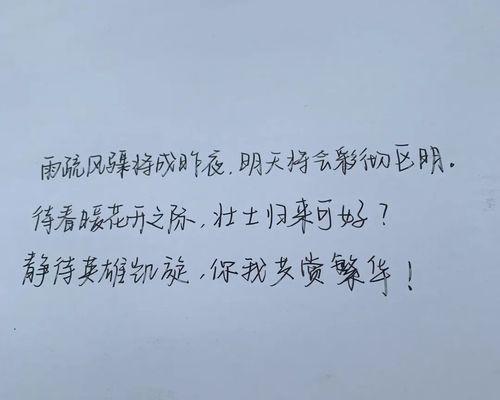 雨疏风骤将成昨夜，明天将会彩彻区明。
待春暖花开之际，壮士归来可好？
静待英雄凯旋，你我共赏繁华！